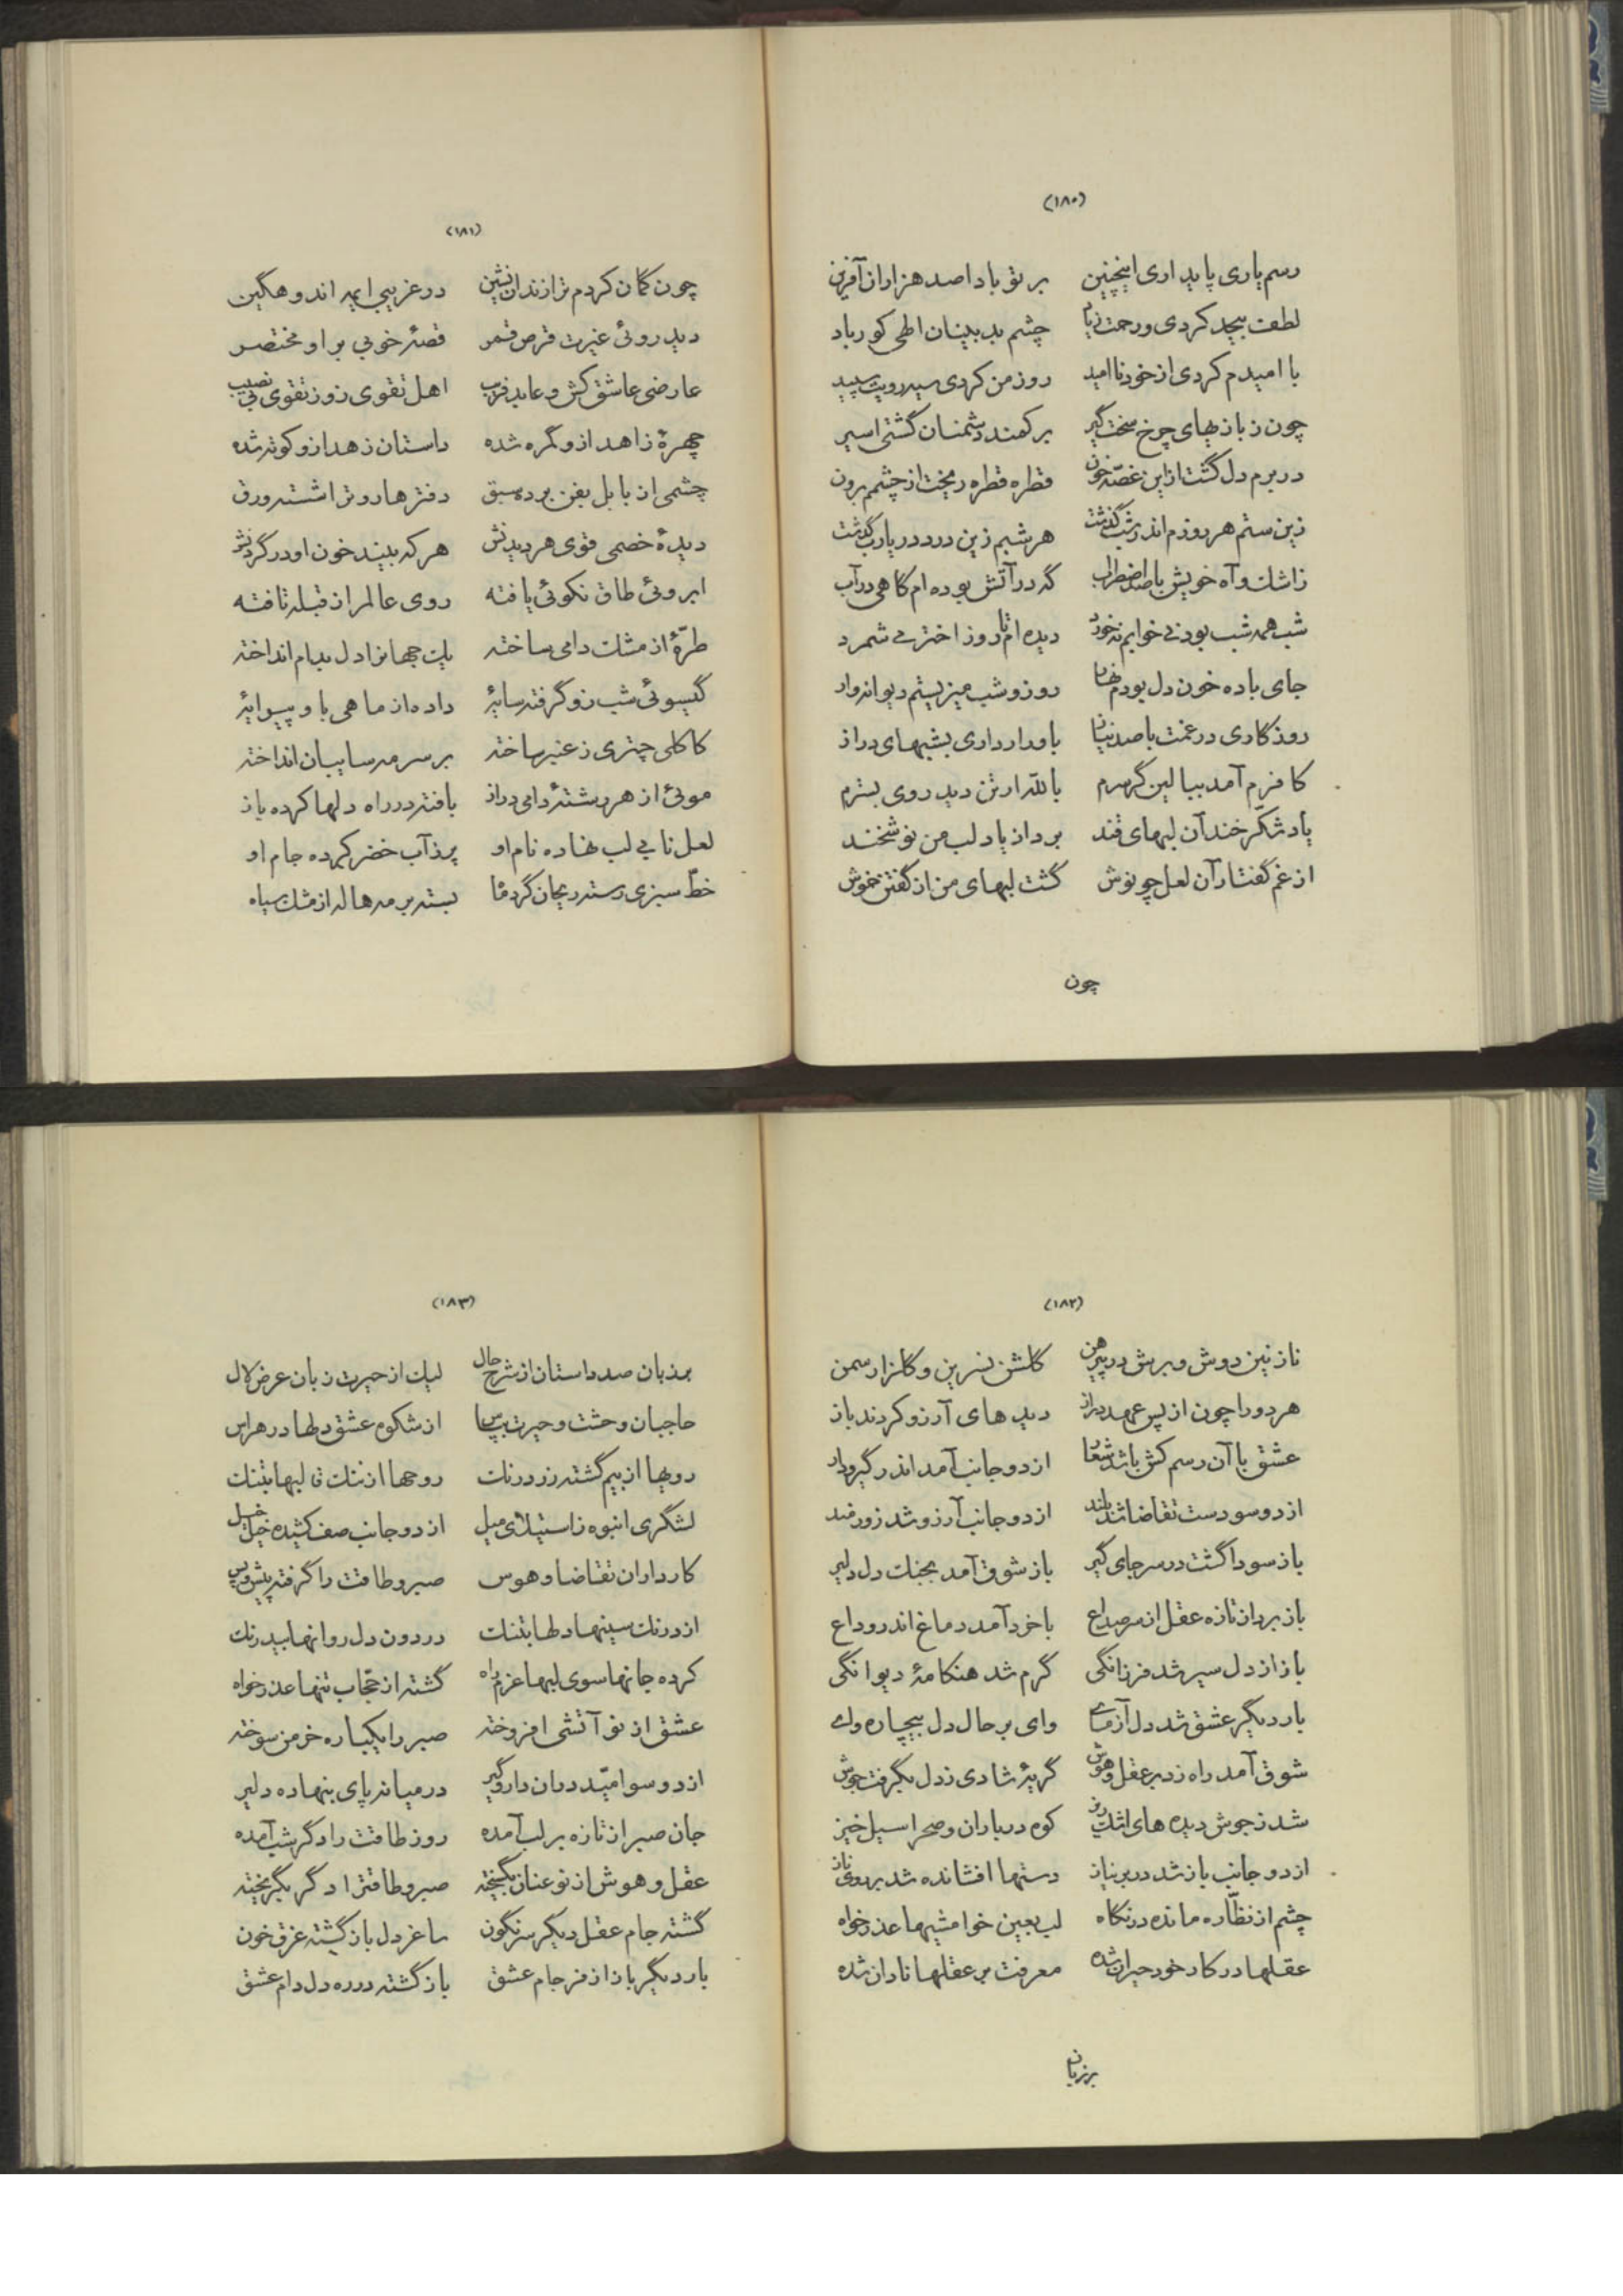 (۱۸۰)
رسم یاری پایداری اینچنین بر تو بادا صد هزاران آفرین
لطف بیحد کردی و رحمت زیاد چشم بد بینان الهی کور باد
با امیدم کردی از خود ناامید روز من کردی سیه رویت سپید
چون ز بازیهای چرخ سخت گیر بر کمند دشمنان گشتی اسیر
در برم دل گشت از این غصّه خون قطره قطره ریخت از چشمم برون
زین ستم هر روزم اندر تب گذشت هر شبم زین درد در یارب گذشت
ز اشک و آه خویش با صد اضطراب گه در آتش بوده‌ام گاهی در آب
شب همه شب بود نی خوابم نه خورد دیده‌ام تا روز اختر می شمرد
جای باده خون دل بودم نهار روز و شب میزیستم دیوانه‌وار
روزگاری در غمت با صد نیاز باورار داری بشبهای دراز
کافرم آمد ببالین گر سرم بالله ار تن دید روی بسترم
یاد شکّر خند آن لبهای قند برد از یاد لب من نوشخند
از غم گفتار آن لعل چو نوش گشت لبهای من از گفتن خموش
چون
(۱۸۱)
چون گمان کردم ترا زندان نشین در غریبی ایمه اندوهگین
دید روئی غیرت قرص قمر قصّهٔ خوبی بر او مختصر
عارضی عاشق کش و عابد فریب اهل تقوی زو ز تقوی بی نصیب
چهرهٔ زاهد ازو گمره شده داستان زهد ازو کوته شده
چشمی از بابل بفن برده سبق دفتر هاروت را شسته ورق
دیدهٔ خصمی قوی هر دیدنش هر که بیند خون او در گردنش
ابروئی طاق نکوئی یافته روی عالم از قبله تافته
طرّهٔ از مشک دامی ساخته یک جهانرا دل بدام انداخته
گیسوئی شب زو گرفته سایهٔ داده از ماهی با و پیرایهٔ
کاکلی چتری ز عنبر ساخته بر سر مه سایبان انداخته
موئی از هر رشتهٔ دامی دراز بافته در راه دلها کرده باز
لعل نابی لب نهاده نام او پر ز آب خضر کرده جام او
خطّ سبزی رسته ریحان گرد ماه بسته بر مه هاله از مشک سیاه
(۱۸۲)
نازنین دوش و برش در پیرهن گلشن نسرین و گلزار سمن
هر دو را چون از پس عهد دراز دیده‌های آرزو کردند باز
عشق با آن رسم کش باشد شعار از دو جانب آمد اندر گیر و دار
از دو سو دست تقاضا شد بلند از دو جانب آرزو شد زورمند
باز سودا گشت در سر جای گیر باز شوق آمد بجنگ دل دلیر
باز برد از تازه عقل از سر صداع با خرد آمد دماغ اندر وداع
باز از دل سیر شد فرزانگی گرم شد هنگامهٔ دیوانگی
بار دیگر عشق شد دل آزمای وای بر حال دل بیچاره وای
شوق آمد راه زد بر عقل و هوش گریهٔ شادی ز دل بگرفت جوش
شد ز جوش دیده‌های اشک ریز کوه در باران و صحرا سیل خیز
از دو جانب باز شد در بر نیاز دستها افشانده شد بر روی ناز
چشم از نظّاره مانده در نگاه لب بعین خوامشیها عذر خواه
عقلها در کار خود حیران شده معرفت بر عقلها نادان شده
برزبان
(۱۸۳)
بر زبان صد داستان از شرح حال لیک از حیرت زبان عرض لال
حاجبان وحشت و حیرت بپاس از شکوه عشق دلها در هراس
رویها از بیم گشته زرد رنگ روحها از ننگ قالبها بتنگ
لشگری انبوه ز استیلای میل از دو جانب صف کشیده خیل خیل
کارداران تقاضا و هوس صبر و طاقت را گرفته پیش و پس
از درنگ سینها دلها بتنگ در درون دل روانها بیدرنگ
کرده جانها سوی لبها عزم راه گشته از حجّاب تنها عذر خواه
عشق از نو آتشی افروخته صبر را یکباره خرمن سوخته
از دو سو امّید در آن دار و گیر در میانه پای بنهاده دلیر
جان صبر از تازه بر لب آمده روز طاقت را دگر شب آمده
عقل و هوش از نو عنان بگسیخته صبر و طاقترا دگر بگریخته
گشته جام عقل دیگر سرنگون ساغر دل باز گشته غرق خون
بار دیگر باز از فر جام عشق باز گشته در ره دل دام عشق